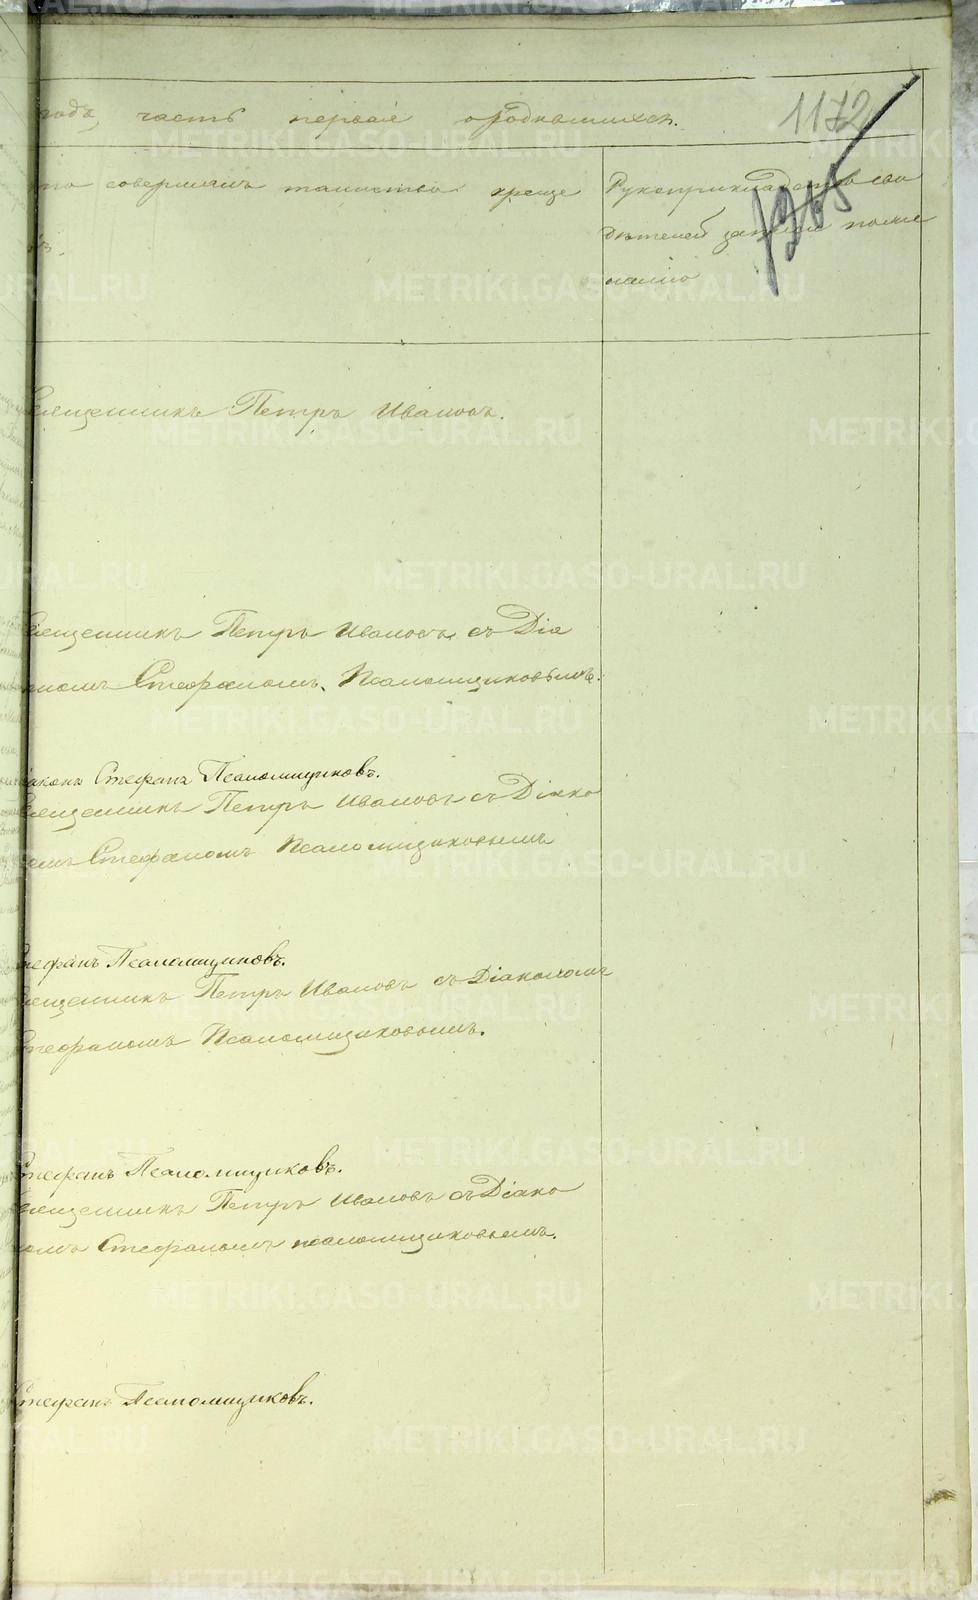 года, часть первая о родившихся. 1172
1265
кто совершалъ таинство креще
нія.
Рукоприкладство сви
дѣтелей записи по жела
нію
Священникъ Петръ Ивановъ.
Священникъ Петръ Ивановъ съ Діа
кономъ Стефаномъ Псаломщиковымъ.
Діаконъ Стефанъ Псаломщиковъ.
Священникъ Петръ Ивановъ съ Діако
номъ Стефаномъ Псаломщиковымъ
Стефанъ Псаломщиковъ.
Священникъ Петръ Ивановъ съ Діакономъ
Стефаномъ Псаломщиковымъ.
Стефанъ Псаломщиковъ.
Священникъ Петръ Ивановъ съ Діако
номъ Стефаномъ псаломщиковымъ.
Стефанъ Псаломщиковъ.
METRIKI.GASO-URAL.RU